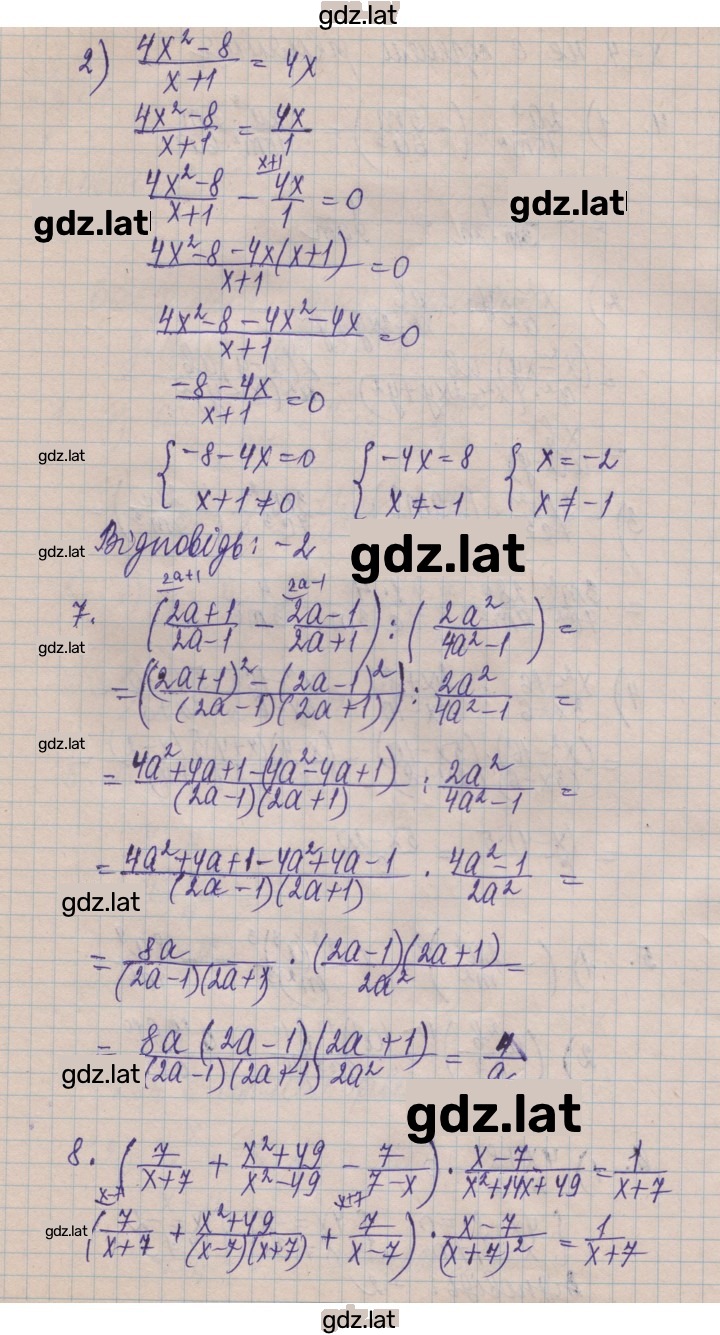 gdz.lat
2) (4x²-8)/(x+1) = 4x
(4x²-8)/(x+1) = 4x/1
x+1
(4x²-8)/(x+1) - 4x/1 = 0
gdz.lat
gdz.lat
(4x²-8-4x(x+1))/(x+1) = 0
(4x²-8-4x²-4x)/(x+1) = 0
(-8-4x)/(x+1) = 0
gdz.lat
{-8-4x=0 {-4x=8 {x=-2
x+1≠0 x≠-1 x≠-1
gdz.lat
Відповідь: -2
gdz.lat
2a+1 2a-1
7. ((2a+1)/(2a-1) - (2a-1)/(2a+1)) : (2a²/(4a²-1)) =
gdz.lat
= (((2a+1)²-(2a-1)²)/((2a-1)(2a+1))) : 2a²/(4a²-1) =
gdz.lat
= (4a²+4a+1-(4a²-4a+1))/((2a-1)(2a+1)) : 2a²/(4a²-1) =
= (4a²+4a+1-4a²+4a-1)/((2a-1)(2a+1)) · (4a²-1)/2a² =
gdz.lat
= 8a/((2a-1)(2a+1) · ((2a-1)(2a+1))/2a² =
= (8a(2a-1)(2a+1))/((2a-1)(2a+1)2a²) = 4/a
gdz.lat
gdz.lat
8. (7/(x+7) + (x²+49)/(x²-49) - 7/(7-x)) · (x-7)/(x²+14x+49) = 1/(x+7)
x-7 x+7
gdz.lat
(7/(x+7) + (x²+49)/((x-7)(x+7)) + 7/(x-7)) · (x-7)/(x+7)² = 1/(x+7)
gdz.lat